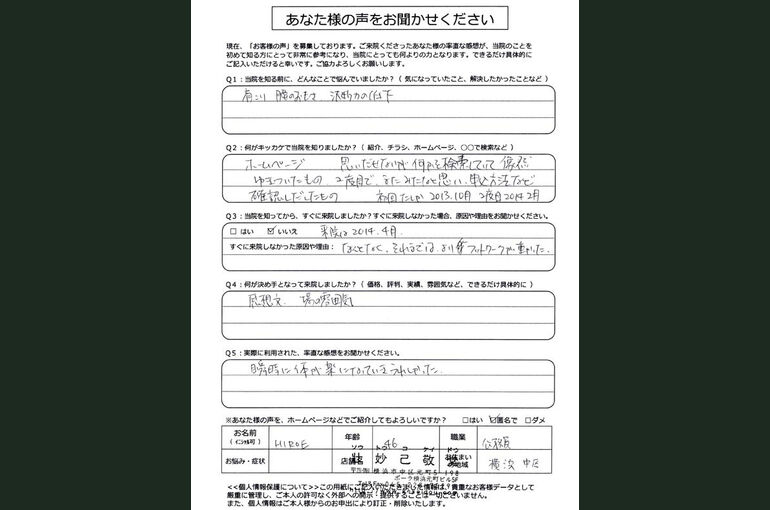 あなた様の声をお聞かせください
現在、「お客様の声」を募集しております。ご来院くださったあなた様の率直な感想が、当院のことを
初めて知る方にとって非常に参考になり、当院にとっても何よりの力となります。できるだけ具体的に
ご記入いただけると幸いです。ご協力よろしくお願いします。
Q1：当院を知る前に、どんなことで悩んでいましたか？（ 気になっていたこと、解決したかったことなど ）
肩こり 腰のおもさ 決断力の低下
Q2：何がキッカケで当院を知りましたか？（ 紹介、チラシ、ホームページ、○○で検索など ）
ホームページ 思いだせないが 何かを検索していて 偶然
ゆきついたもの。2度目で、またみたなと思い、申込方法など
確認しだしたもの 初回たしか 2013.10月 2度目2014 2月
Q3：当院を知ってから、すぐに来院しましたか？すぐに来院しなかった場合、原因や理由をお聞かせください。
□ はい ☑ いいえ 来院は2014.4月
すぐに来院しなかった原因や理由： なんとなく、それまでは、より フットワークが重かった。
Q4：何が決め手となって来院しましたか？（ 価格、評判、実績、雰囲気など、できるだけ具体的に ）
感想文 場の雰囲気
Q5：実際に利用された、率直な感想をお聞かせください。
瞬時に体が楽になっていきうれしかった
※あなた様の声を、ホームページなどでご紹介してもよろしいですか？ □はい ☑匿名で □ダメ
お名前 HIROE 年齢 46 職業 公務員
（イニシャル可）
お悩み・症状 店舗名 妙 己 敬 お住まいの地域 横浜 中区
横浜市中区元町5-198
ポーラ横浜元町ビル5F
<<個人情報保護について>>この用紙にご記入いただきました情報は、貴重なお客様データとして
厳重に管理し、ご本人の許可なく外部への開示・提供することは一切ございません。
また、個人情報はご本人様からのお申出により訂正・削除いたします。